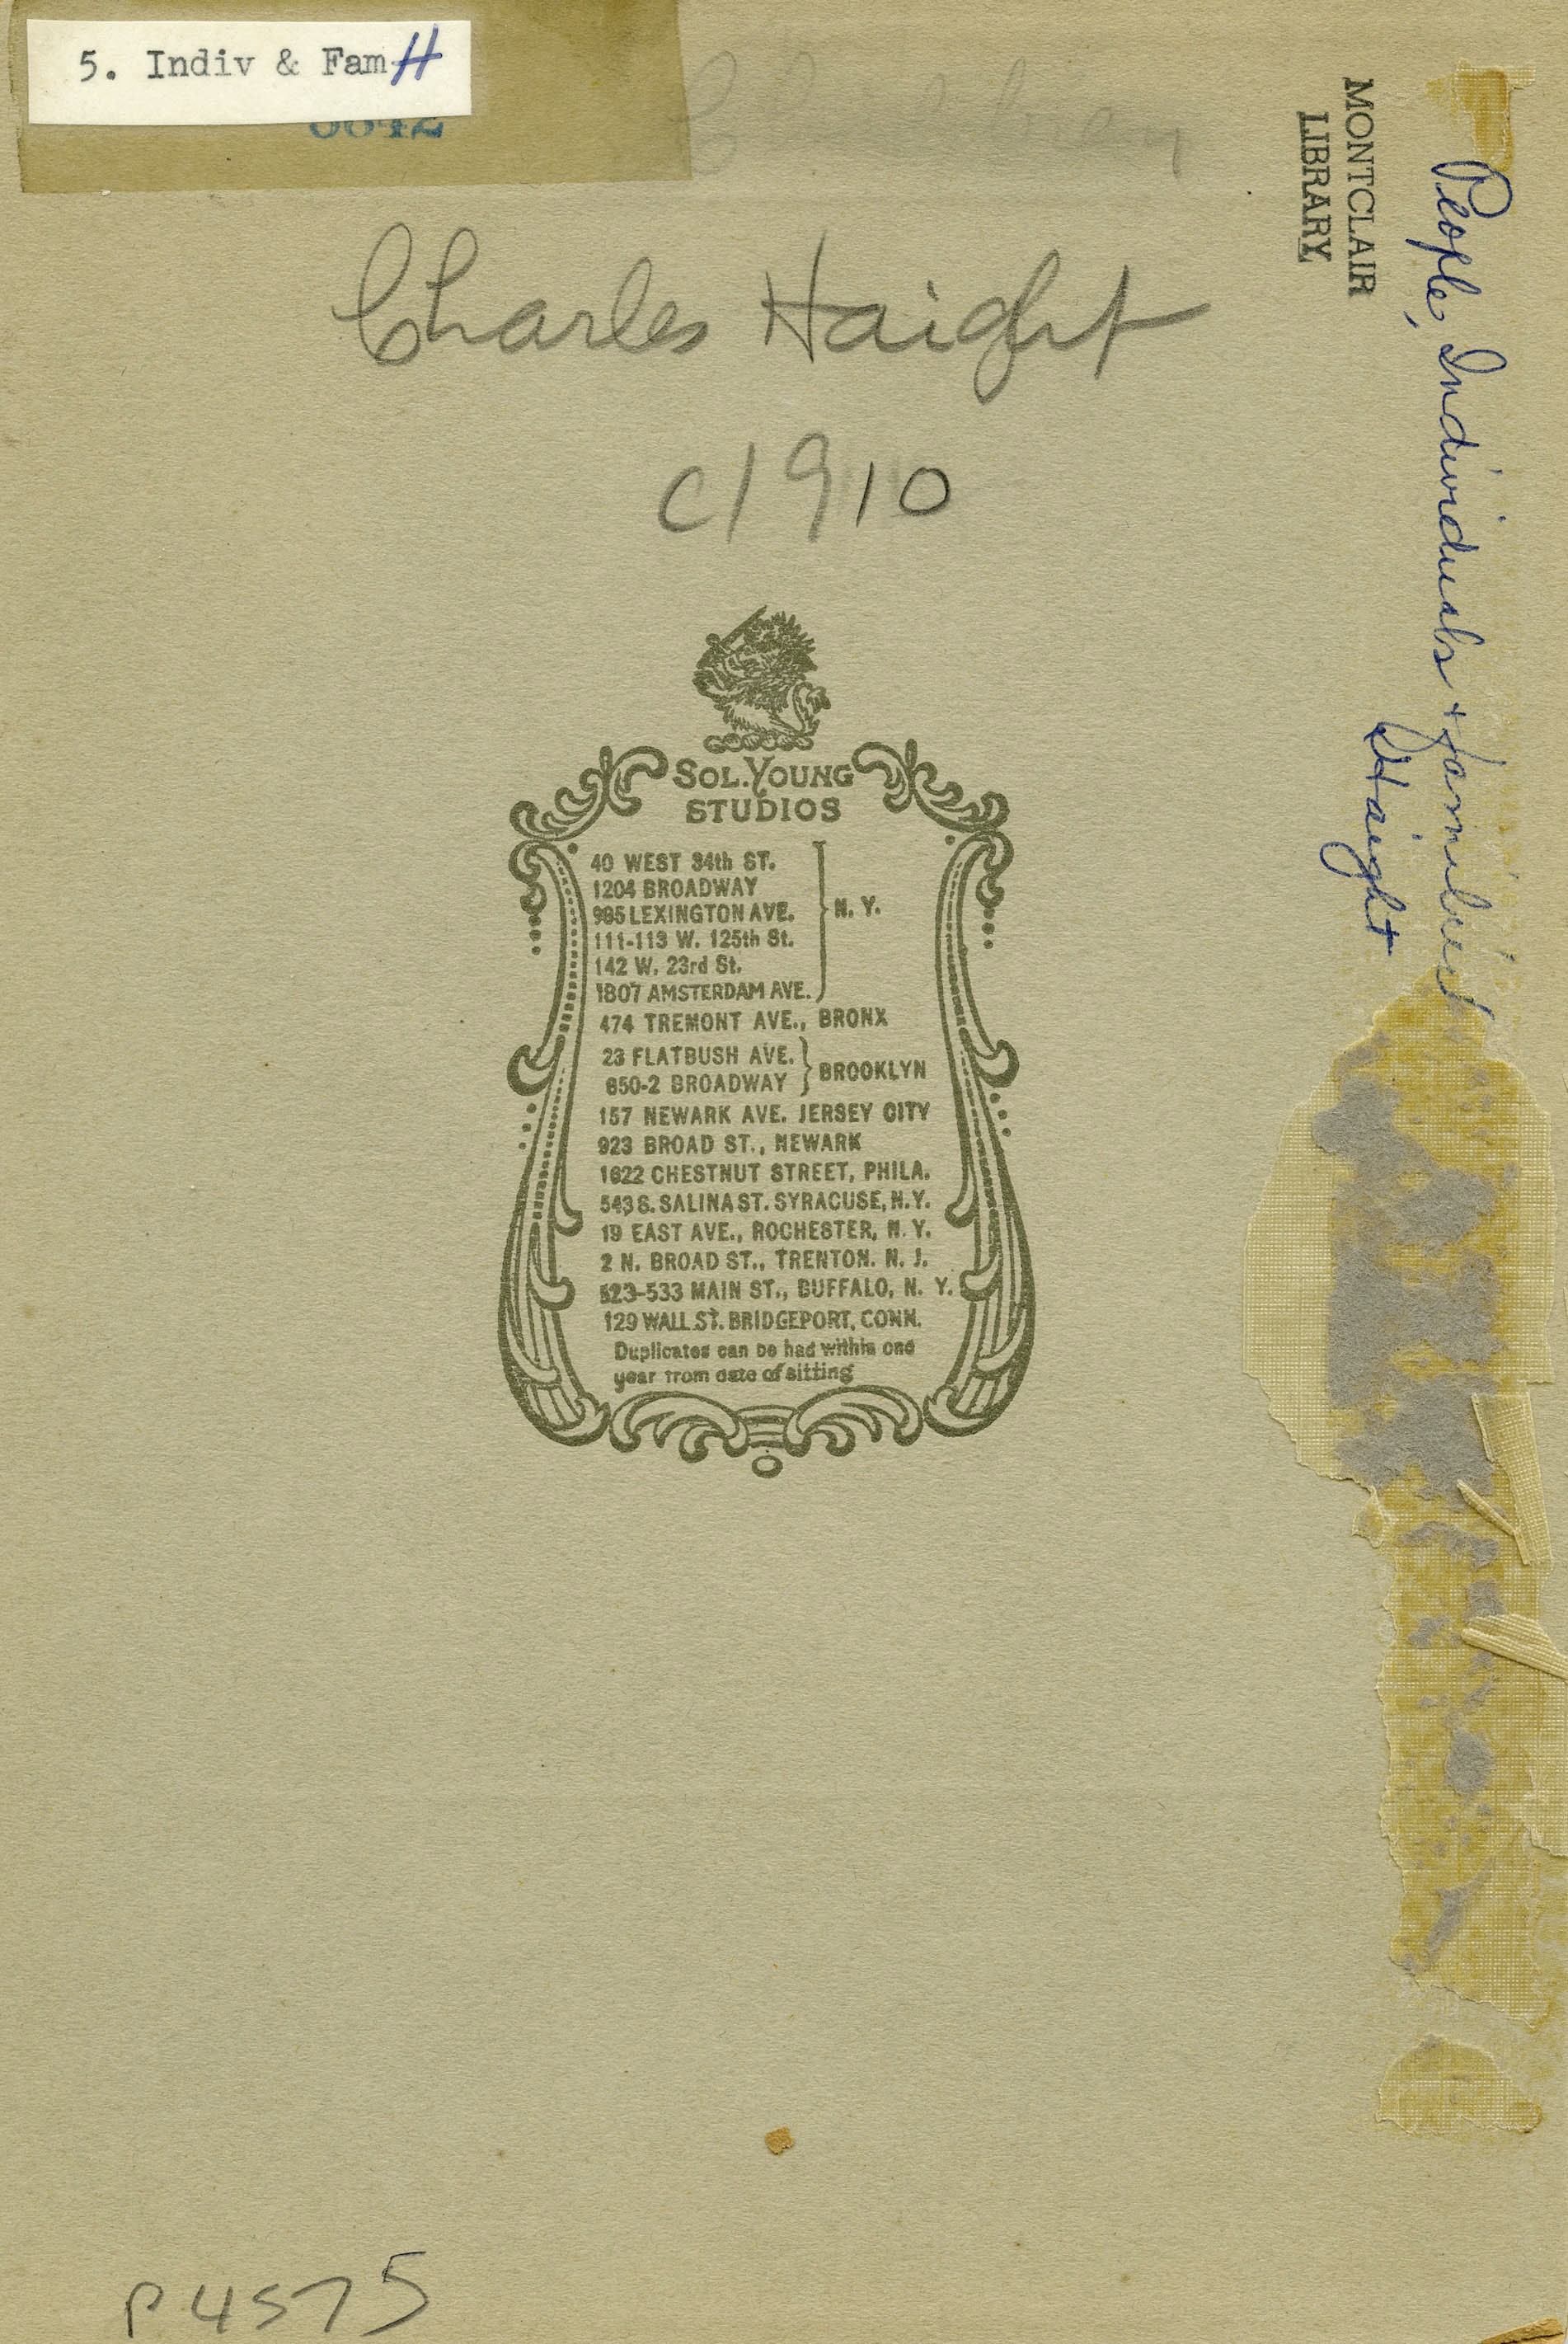 5. Indiv & Fam H
Charles Haight
c1910
SOL. YOUNG
STUDIOS
40 WEST 34th ST.
1204 BROADWAY
995 LEXINGTON AVE.
111-113 W. 125th St.
142 W. 23rd St.
1807 AMSTERDAM AVE.
N. Y.
474 TREMONT AVE., BRONX
23 FLATBUSH AVE.
850-2 BROADWAY
BROOKLYN
157 NEWARK AVE. JERSEY CITY
923 BROAD ST., NEWARK
1622 CHESTNUT STREET, PHILA.
543 S. SALINA ST. SYRACUSE, N.Y.
19 EAST AVE., ROCHESTER, N. Y.
2 N. BROAD ST., TRENTON. N. J.
523-533 MAIN ST., BUFFALO, N. Y.
129 WALL ST. BRIDGEPORT, CONN.
Duplicates can be had within one
year from date of sitting
MONTCLAIR
LIBRARY
People, Individuals + Families
Haight
P4575